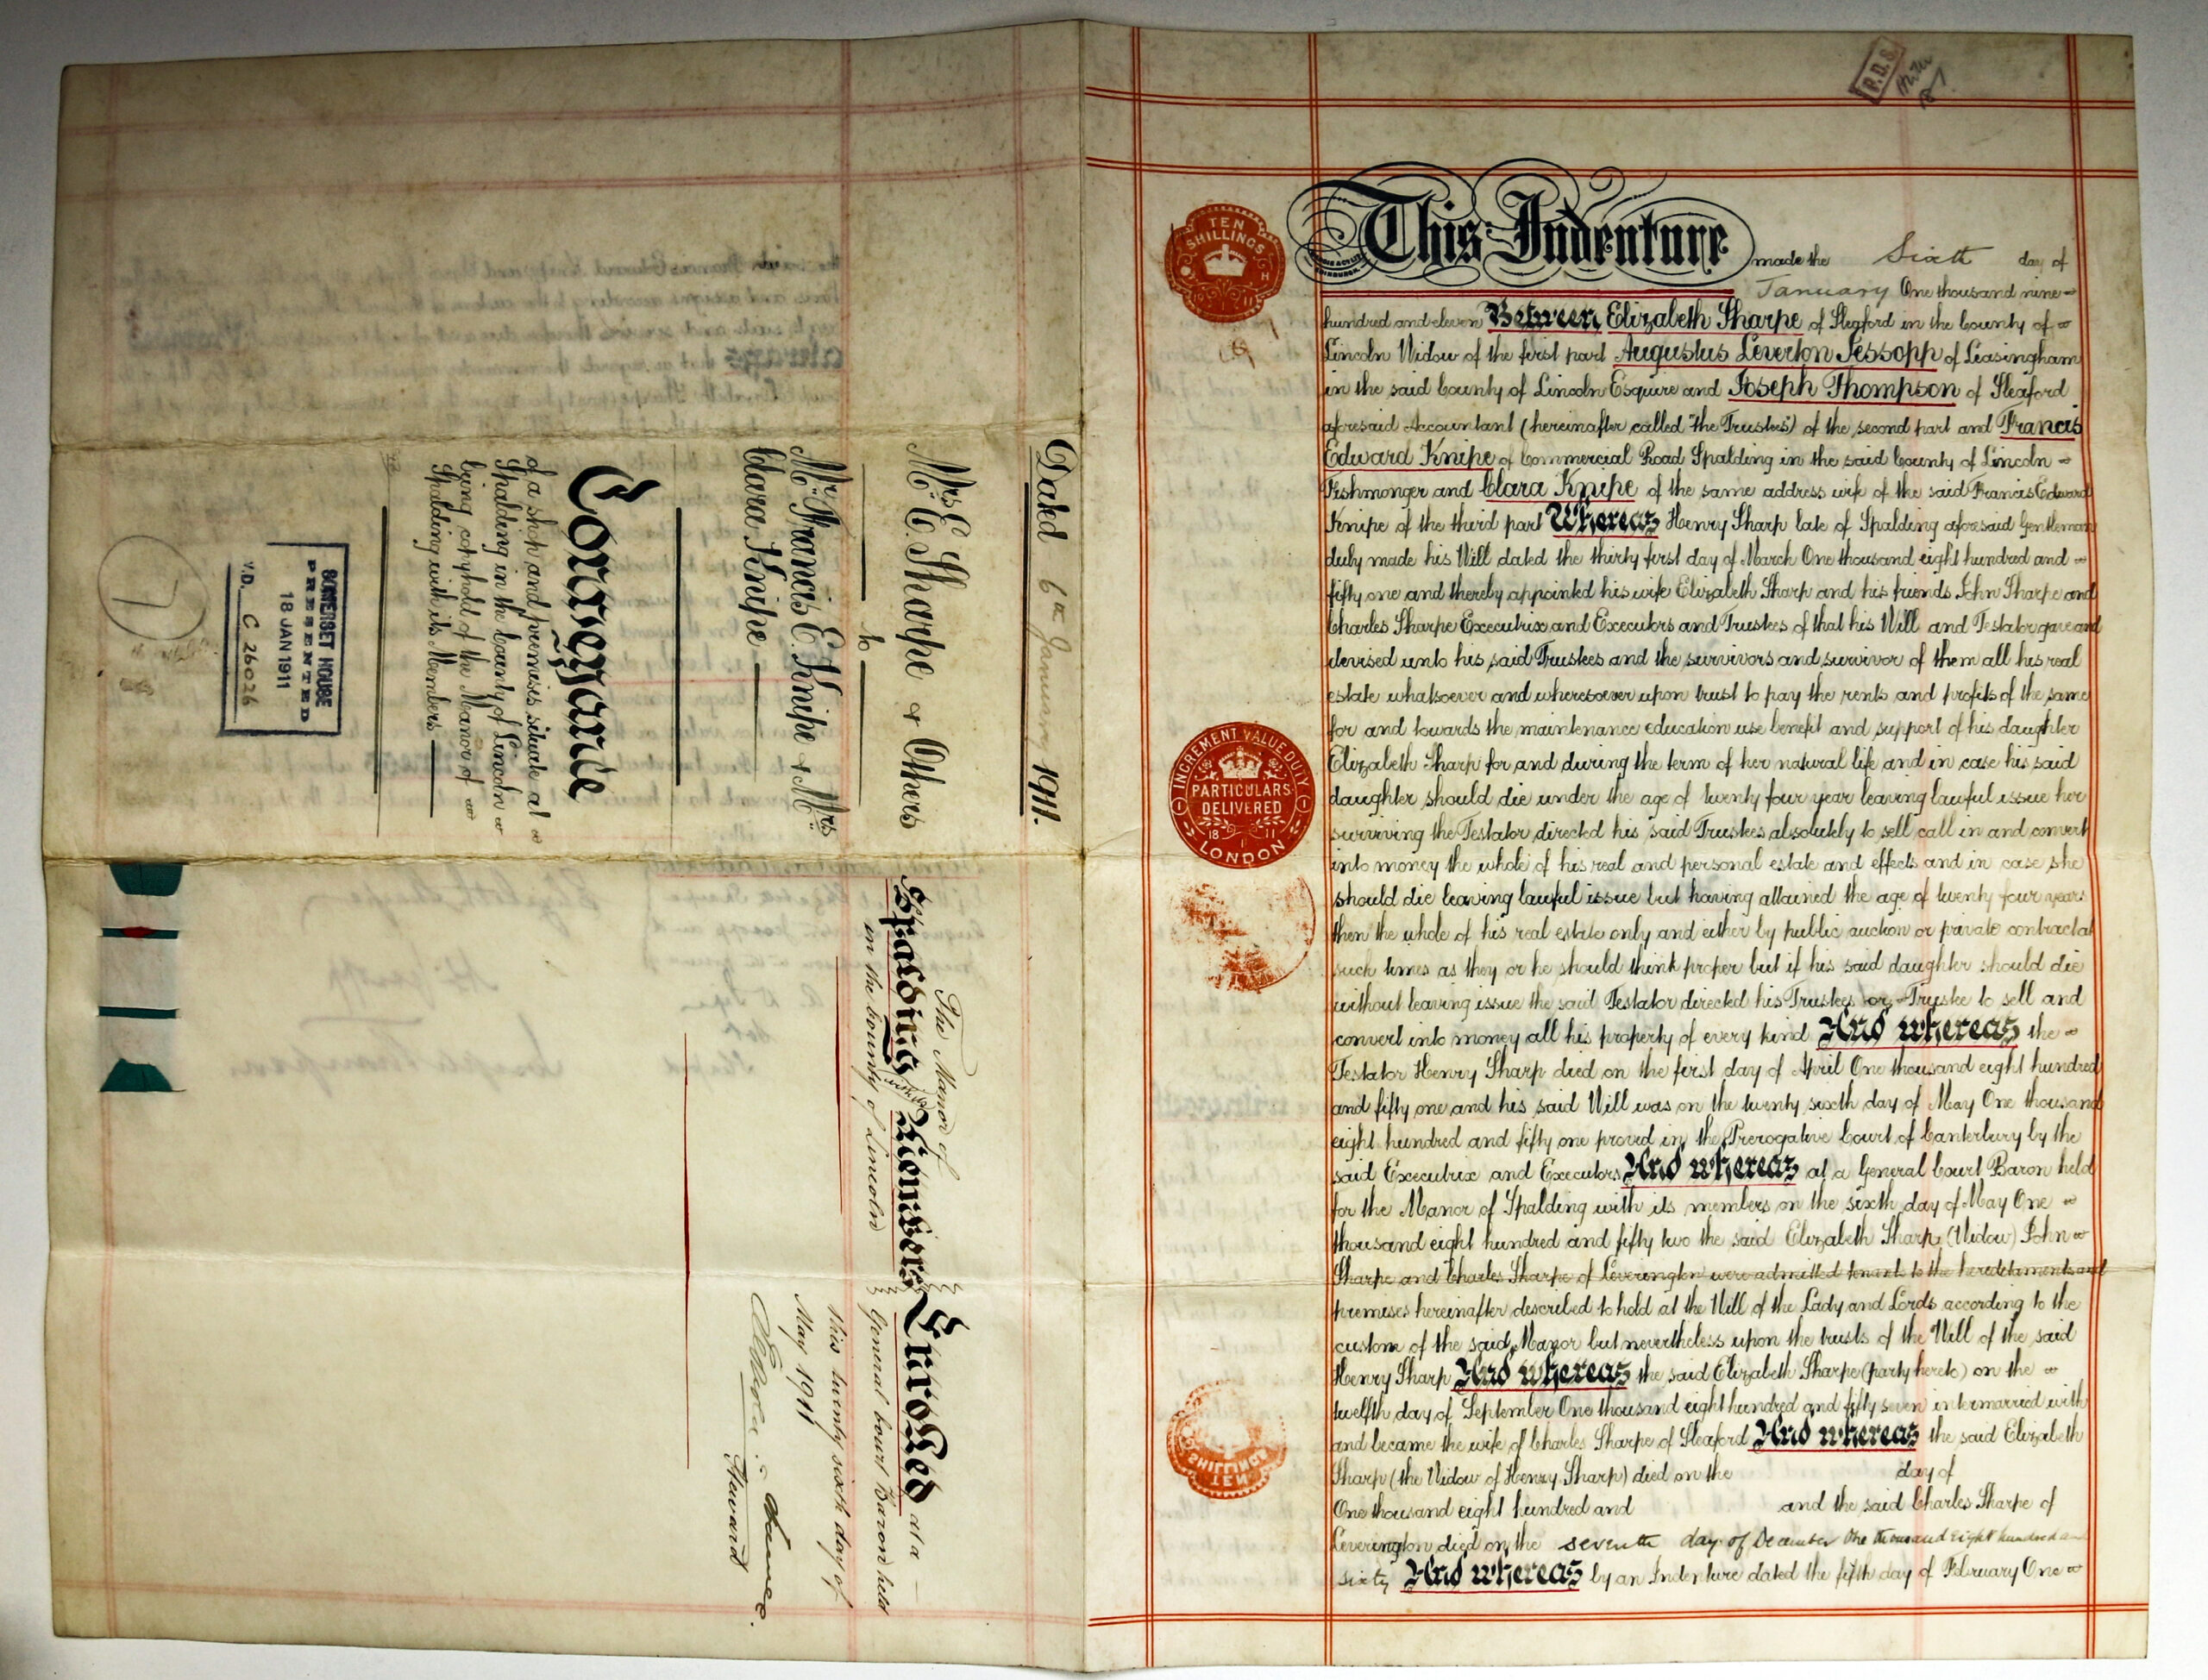 This Indenture made the Sixth day of
January One thousand nine
hundred and eleven Between Elizabeth Sharpe of Sleaford in the County of
Lincoln Widow of the first part Augustus Leverton Jessopp of Leasingham
in the said County of Lincoln Esquire and Joseph Thompson of Sleaford
aforesaid Accountant (hereinafter called "the Trustees") of the second part and Francis
Edward Knipe of Commercial Road Spalding in the said County of Lincoln
Fishmonger and Clara Knipe of the same address wife of the said Francis Edward
Knipe of the third part Whereas Henry Sharp late of Spalding aforesaid Gentleman
duly made his Will dated the thirty first day of March One thousand eight hundred and
fifty one and thereby appointed his wife Elizabeth Sharp and his friends John Sharpe and
Charles Sharpe Executrix and Executors and Trustees of that his Will and Testator gave and
devised unto his said Trustees and the survivors and survivor of them all his real
estate whatsoever and wheresoever upon trust to pay the rents and profits of the same
for and towards the maintenance education use benefit and support of his daughter
Elizabeth Sharp for and during the term of her natural life and in case his said
daughter should die under the age of twenty four year leaving lawful issue her
surviving the Testator directed his said Trustees absolutely to sell call in and convert
into money the whole of his real and personal estate and effects and in case she
should die leaving lawful issue but having attained the age of twenty four years
then the whole of his real estate only and either by public auction or private contract at
such times as they or he should think proper but if his said daughter should die
without leaving issue the said Testator directed his Trustees or Trustee to sell and
convert into money all his property of every kind And whereas the
Testator Henry Sharp died on the first day of April One thousand eight hundred
and fifty one and his said Will was on the twenty sixth day of May One thousand
eight hundred and fifty one proved in the Prerogative Court of Canterbury by the
said Executrix and Executors And whereas at a General Court Baron held
for the Manor of Spalding with its members on the sixth day of May One
thousand eight hundred and fifty two the said Elizabeth Sharp (Widow) John
Sharpe and Charles Sharpe of Leverington were admitted tenants to the hereditaments and
premises hereinafter described to hold at the Will of the Lady and Lords according to the
custom of the said Manor but nevertheless upon the trusts of the Will of the said
Henry Sharp And whereas the said Elizabeth Sharpe (party hereto) on the
twelfth day of September One thousand eight hundred and fifty seven intermarried with
and became the wife of Charles Sharpe of Sleaford And whereas the said Elizabeth
Sharp (the Widow of Henry Sharp) died on the day of
One thousand eight hundred and and the said Charles Sharpe of
Leverington died on the seventh day of December One thousand eight hundred and
sixty And whereas by an Indenture dated the fifth day of February One
P.D.S.
TEN
SHILLINGS
INCREMENT VALUE DUTY
PARTICULARS
DELIVERED
18 11
1
LONDON
SHILLINGS
TEN
Dated 6th January 1911.
Mrs E. Sharpe & Others
to
Mr. Francis E. Knipe & Mrs
Clara Knipe
Conveyance
of a shop and premises situate at
Spalding in the County of Lincoln
being copyhold of the Manor of
Spalding with its Members
SOMERSET HOUSE
PRESENTED
18 JAN 1911
V.D. C 26026
7
The Manor of
Spalding with its Members
in the County of Lincoln
Enrolled at a
General Court Baron held
this twenty sixth day of
May 1911
Steward